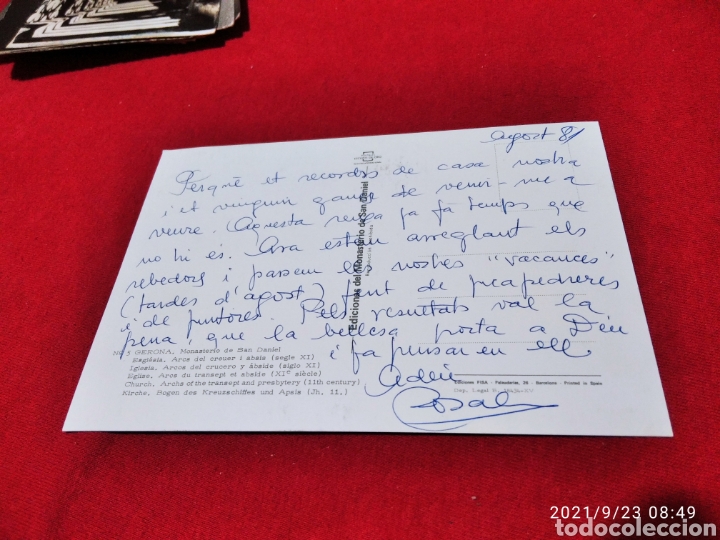 agost 81
Perquè et recordis de casa nostra
i et vinguin ganes de venir-me a
veure. (Aquesta reixa ja fa temps que
no hi és. Ara estem arreglant els
rebedors i passem les nostres "vacances"
(tardes d'agost) fent de picapedreres
i de pintores. Pels resultats val la
pena, que la bellesa porta a Déu
i fa pensar en ell.
Adéu
Ediciones del Monasterio de San Daniel
Nº 5 GERONA. Monasterio de San Daniel
Església. Arcs del creuer i absis (segle XI)
Iglesia. Arcos del crucero y ábside (siglo XI)
Eglise. Arcs du transept et abside (XIe siècle)
Church. Archs of the transept and presbytery (11th century)
Kirche. Bogen des Kreuzschiffes und Apsis (Jh. 11.)
Barcelona - Printed in Spain
Dep. Legal B.
2021/9/23 08:49
todocoleccion